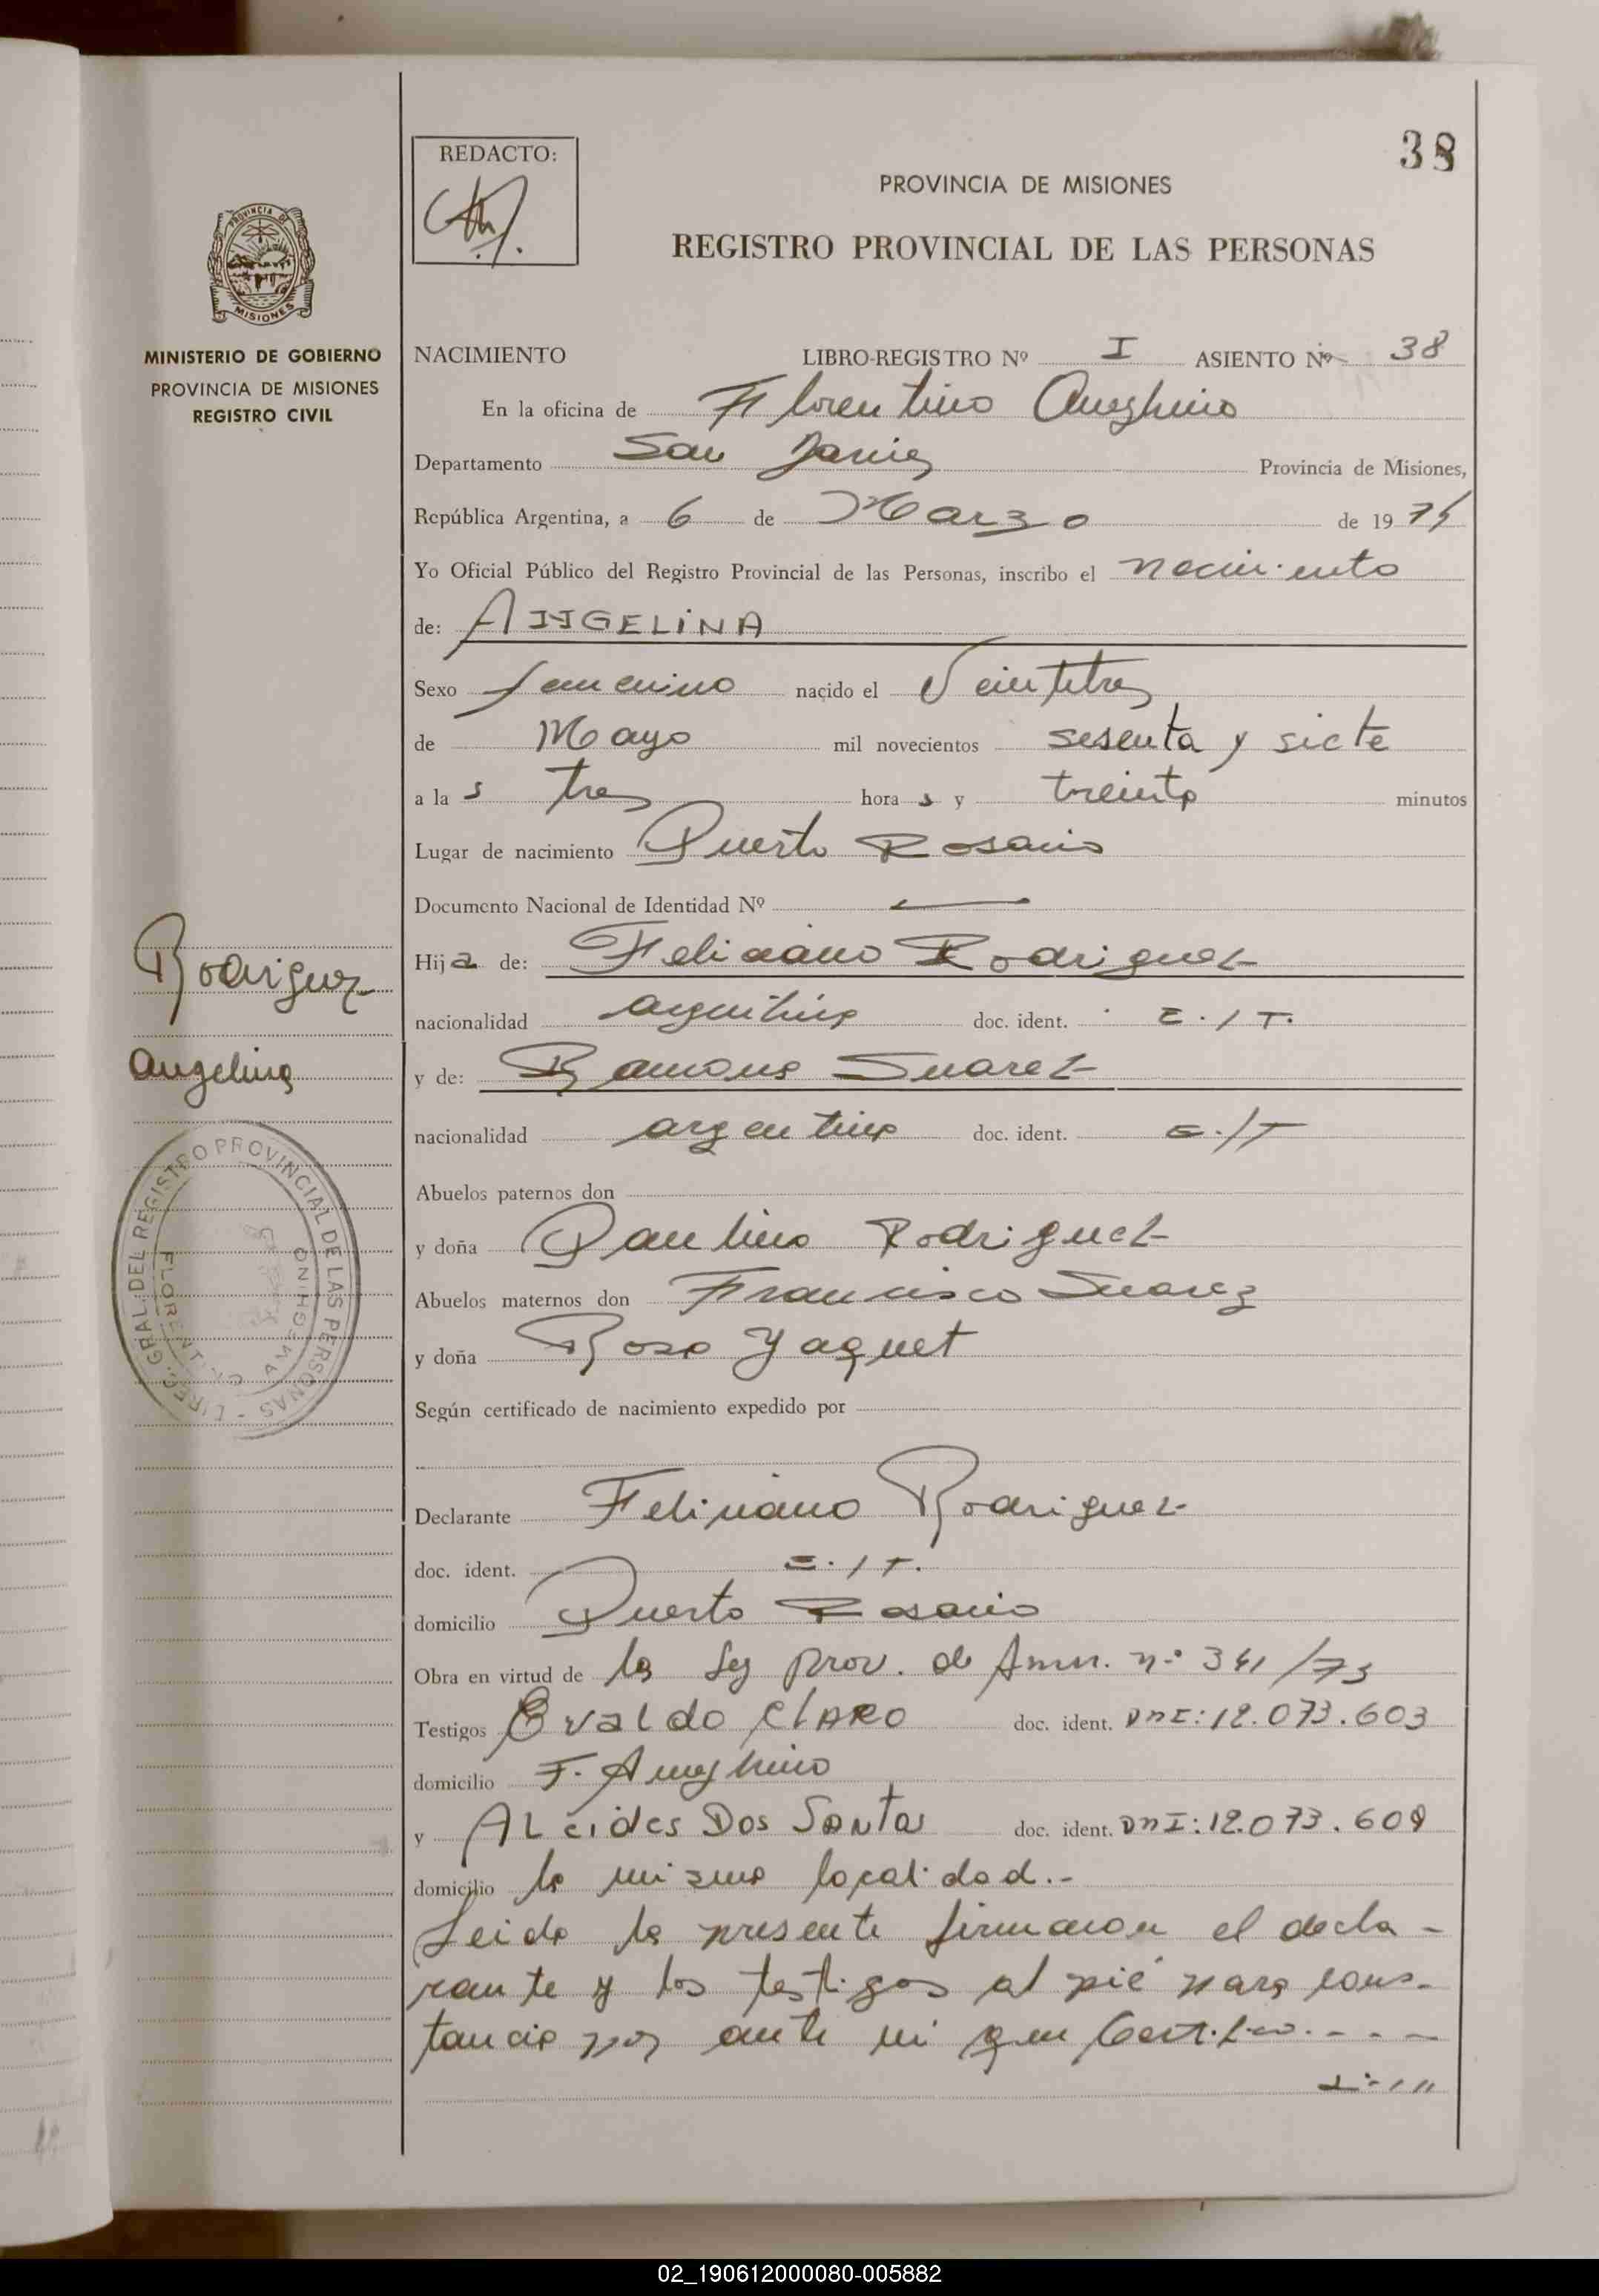 38
REDACTO:
PROVINCIA DE MISIONES
REGISTRO PROVINCIAL DE LAS PERSONAS
PROVINCIA DE
MISIONES
MINISTERIO DE GOBIERNO
PROVINCIA DE MISIONES
REGISTRO CIVIL
NACIMIENTO LIBRO-REGISTRO Nº I ASIENTO Nº 38
En la oficina de Florentino Ameghino
Departamento San Javier Provincia de Misiones,
República Argentina, a 6 de Marzo de 1975
Yo Oficial Público del Registro Provincial de las Personas, inscribo el nacimiento
de: ANGELINA
Sexo femenino nacido el Veintitres
de Mayo mil novecientos sesenta y siete
a la s tres hora s y treinta minutos
Lugar de nacimiento Puerto Rosario
Documento Nacional de Identidad Nº —
Rodriguez
Hija de: Feliciano Rodriguez
nacionalidad argentina doc. ident. E./T.
Angelina
y de: Ramona Suarez
nacionalidad argentina doc. ident. E./T
Abuelos paternos don
y doña Paulina Rodriguez
Abuelos maternos don Francisco Suarez
y doña Rosa Yaquet
DIREC. GRAL. DEL REGISTRO PROVINCIAL DE LAS PERSONAS -
FLORENTINO AMEGHINO
Según certificado de nacimiento expedido por
Declarante Feliciano Rodriguez
doc. ident. E./T.
domicilio Puerto Rosario
Obra en virtud de la Ley prov. de Amn. nº 341/73
Testigos Evaldo CLARO doc. ident. DNI: 12.073.603
domicilio F. Ameghino
y ALcides Dos Santos doc. ident. DNI: 12.073.609
domicilio la misma localidad.-
Leida la presente firmaron el decla-
rante y los testigos al pié para cons-
tancia por ante mi que Certifico. - - -
02_190612000080-005882